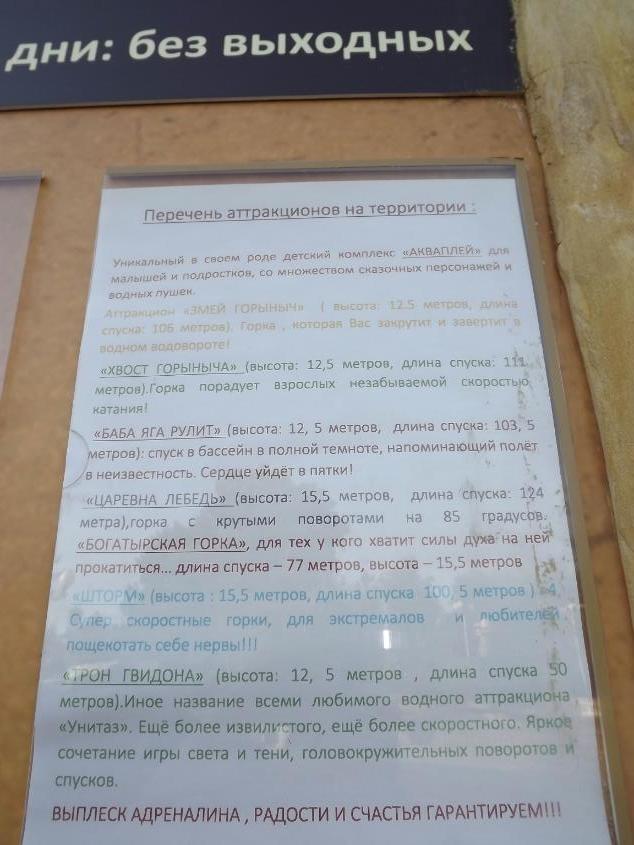 дни: без выходных
Перечень аттракционов на территории :
Уникальный в своем роде детский комплекс «АКВАПЛЕЙ» для
малышей и подростков, со множеством сказочных персонажей и
водных пушек.
Аттракцион «ЗМЕЙ ГОРЫНЫЧ» ( высота: 12.5 метров, длина
спуска: 106 метров). Горка , которая Вас закрутит и завертит в
водном водовороте!
«ХВОСТ ГОРЫНЫЧА» (высота: 12,5 метров, длина спуска: 111
метров).Горка порадует взрослых незабываемой скоростью
катания!
«БАБА ЯГА РУЛИТ» (высота: 12, 5 метров, длина спуска: 103, 5
метров): спуск в бассейн в полной темноте, напоминающий полёт
в неизвестность. Сердце уйдёт в пятки!
«ЦАРЕВНА ЛЕБЕДЬ» (высота: 15,5 метров, длина спуска: 124
метра),горка с крутыми поворотами на 85 градусов.
«БОГАТЫРСКАЯ ГОРКА», для тех у кого хватит силы духа на ней
прокатиться... длина спуска – 77 метров, высота – 15,5 метров
«ШТОРМ» (высота : 15,5 метров, длина спуска 100, 5 метров ) 4
Супер скоростные горки, для экстремалов и любителей
пощекотать себе нервы!!!
«ТРОН ГВИДОНА» (высота: 12, 5 метров , длина спуска 50
метров).Иное название всеми любимого водного аттракциона
«Унитаз». Ещё более извилистого, ещё более скоростного. Яркое
сочетание игры света и тени, головокружительных поворотов и
спусков.
ВЫПЛЕСК АДРЕНАЛИНА , РАДОСТИ И СЧАСТЬЯ ГАРАНТИРУЕМ!!!